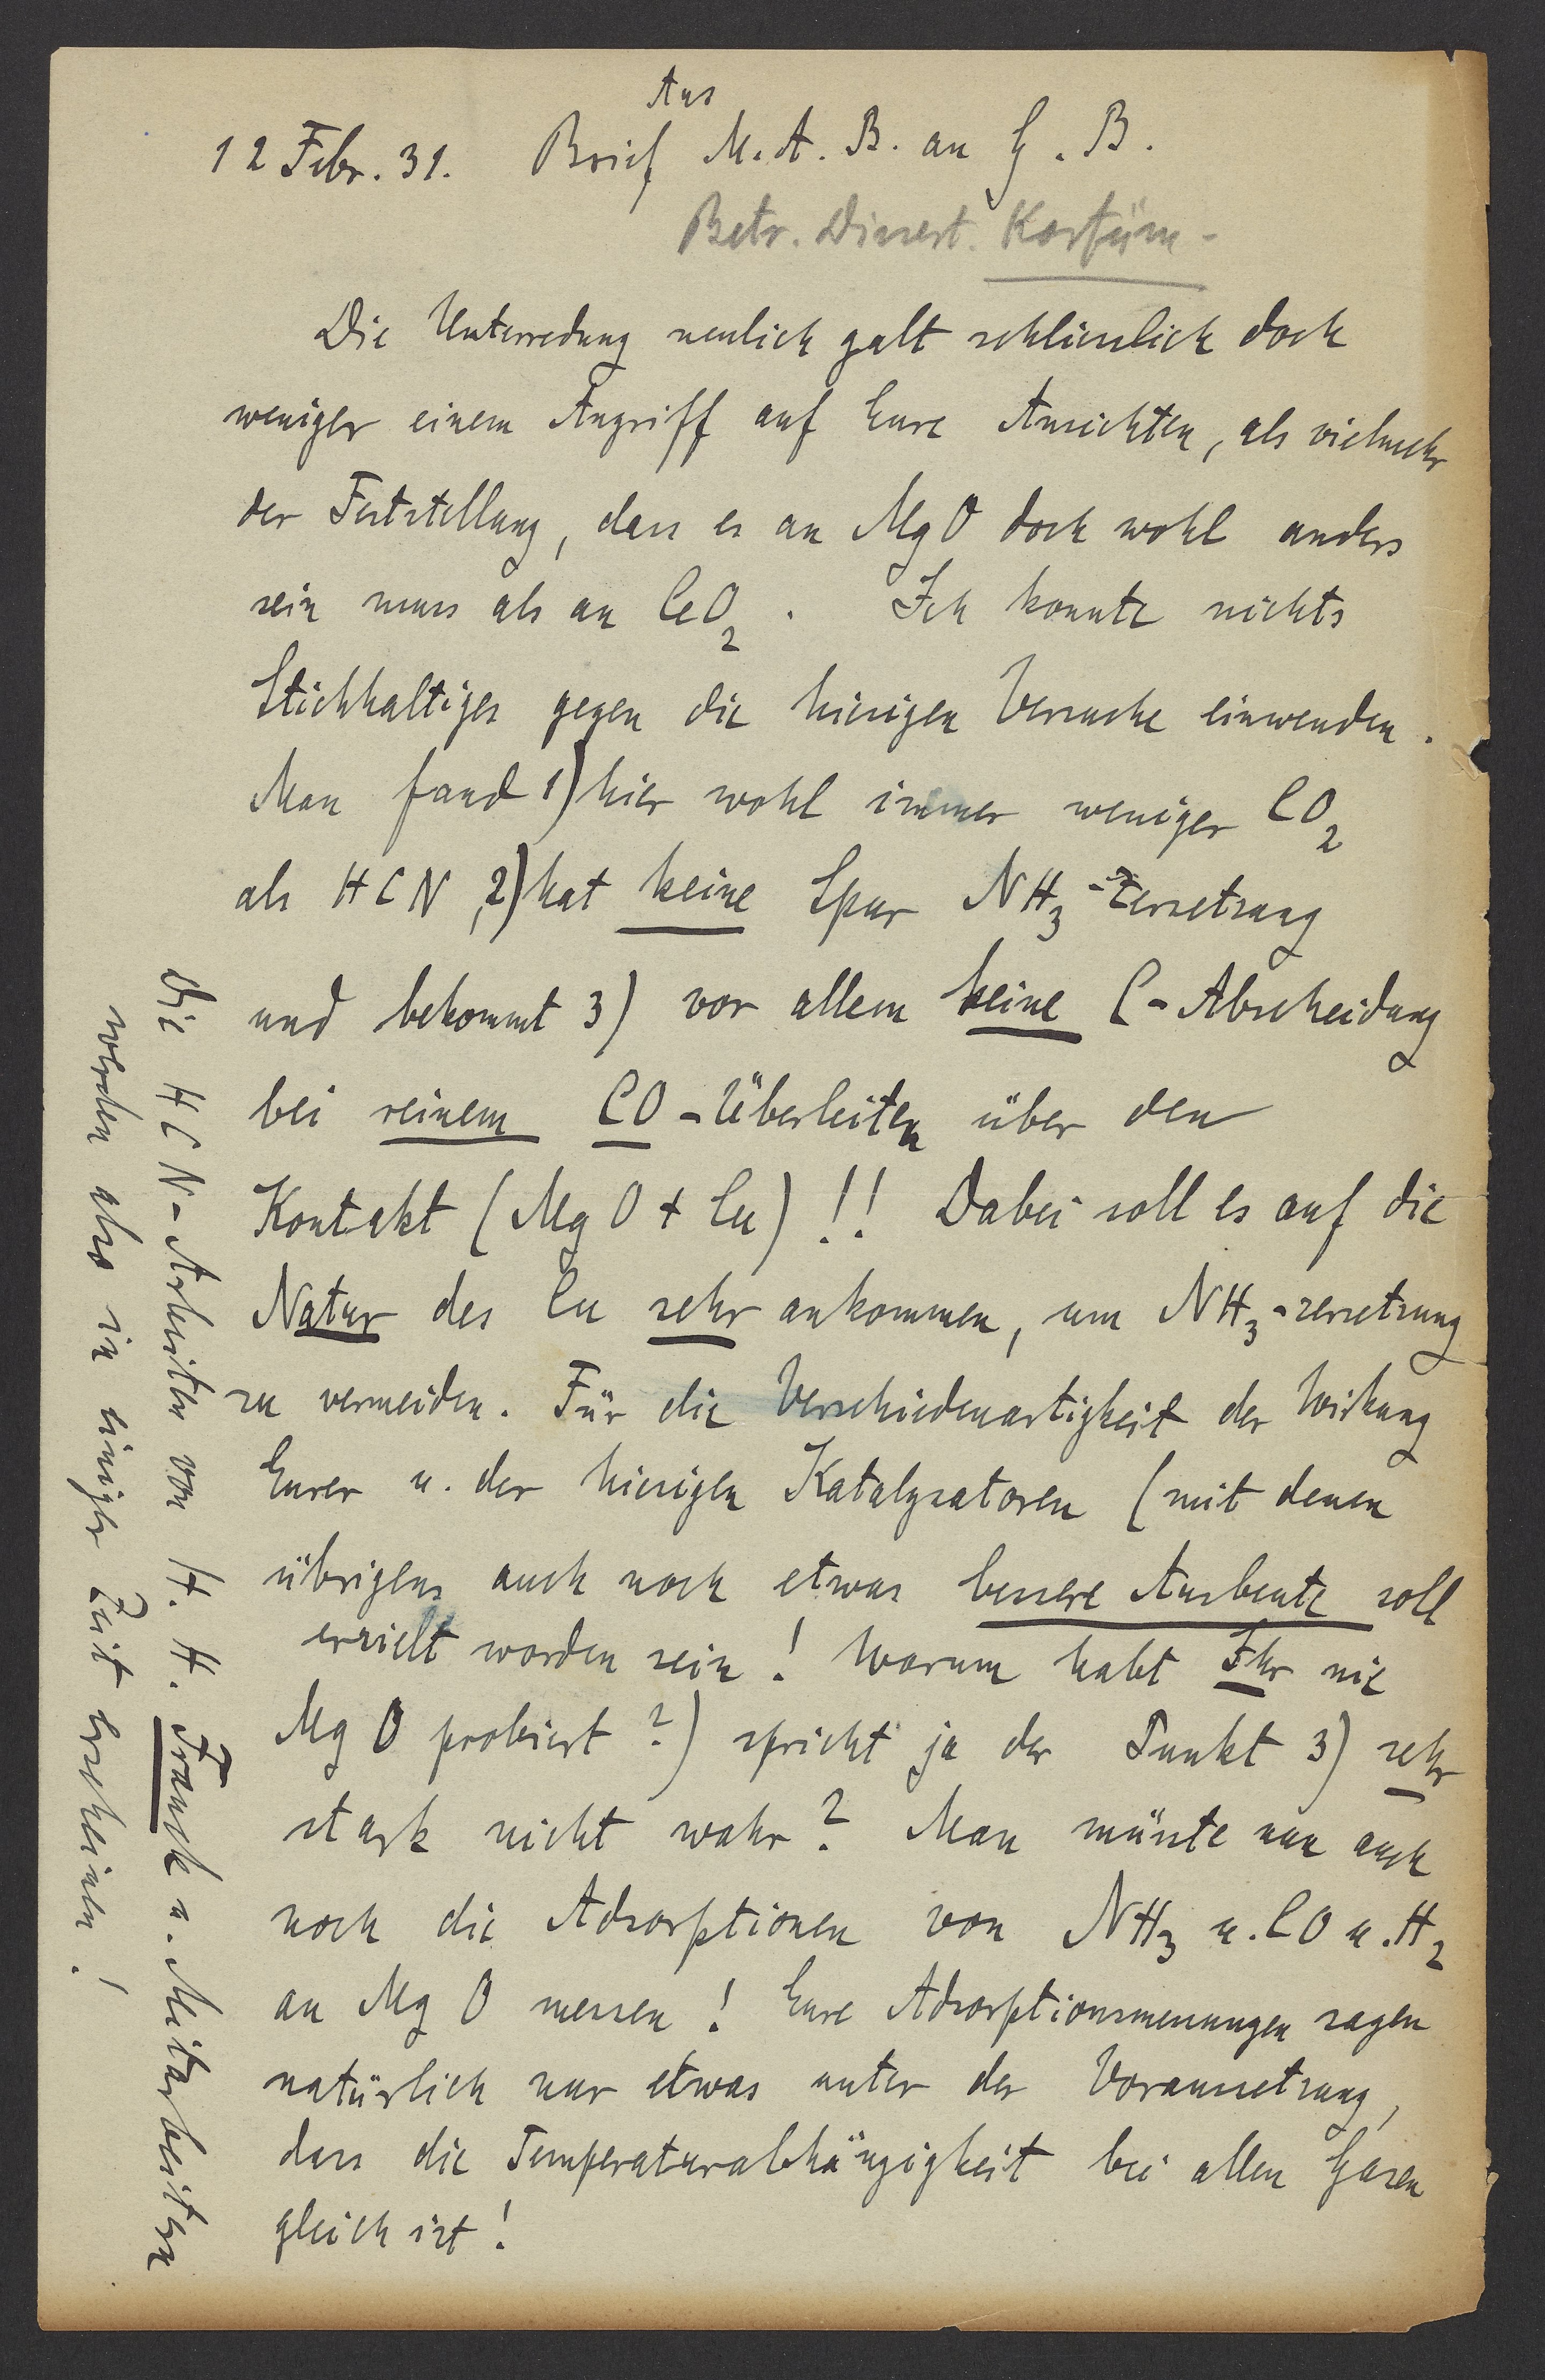 Aus
12 Febr. 31. Brief M. A. B. an G. B.
Betr. Dissert. Kortüm -
Die Unterredung neulich galt schliesslich doch
weniger einem Angriff auf Eure Ansichten, als vielmehr
der Feststellung, dass es an MgO doch wohl anders
sein muss als an CeO₂. Ich konnte nichts
Stichhaltiges gegen die hiesigen Versuche einwenden.
Man fand 1) hier wohl immer weniger CO₂
als HCN, 2) hat keine Spur NH₃-Zersetzung
und bekommt 3) vor allem keine C-Abscheidung
bei reinem CO-Überleiten über den
Kontakt (MgO + Cu) !! Dabei soll es auf die
Natur des Cu sehr ankommen, um NH₃-zersetzung
zu vermeiden. Für die Verschiedenartigkeit der Wirkung
Eurer u. der hiesigen Katalysatoren (mit denen
übrigens auch noch etwas bessere Ausbeute soll
erzielt worden sein! Warum habt Ihr nie
MgO probiert?) spricht ja der Punkt 3) sehr
stark nicht wahr? Man müsste nun auch
noch die Adsorptionen von NH₃ u. CO u. H₂
an MgO messen! Eure Adsorptionsmessungen sagen
natürlich nur etwas unter der Voraussetzung,
dass die Temperaturabhängigkeit bei allen Gasen
gleich ist!
Die HCN-Arbeiten von H. H. Franck u. Mitarbeiter
werden also in einiger Zeit erscheinen!